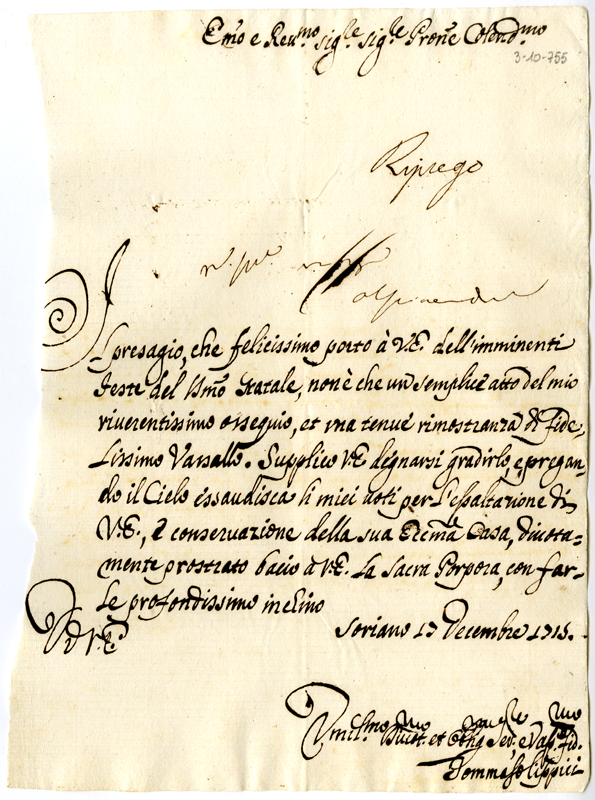 Emo e Reu.mo Sig.le Sig.le Prone Colend.mo
3-10-755
Riprego
Il presagio, che felicissimo porto à V.E. dell'imminenti
feste del SSmo Natale, non è che un semplice atto del mio
riuerentissimo ossequio, et una tenue rimostranza di Fide,
lissimo Vassallo. Supplico V.E. degnarsi gradirlo, e pregan,
do il Cielo essaudisca li miei uoti per l'essaltazione di
V.E., e conseruazione della sua Eccma Casa, diuota=
mente prostrato bacio à V.E. la Sacra Porpora, con far-
le profondissimo inclino
D V.E.
Soriano 17 Decembre 1715.
Vmil.mo Diuot. et Obbg Ser. e Vass. fid.
Tommaso Lippici